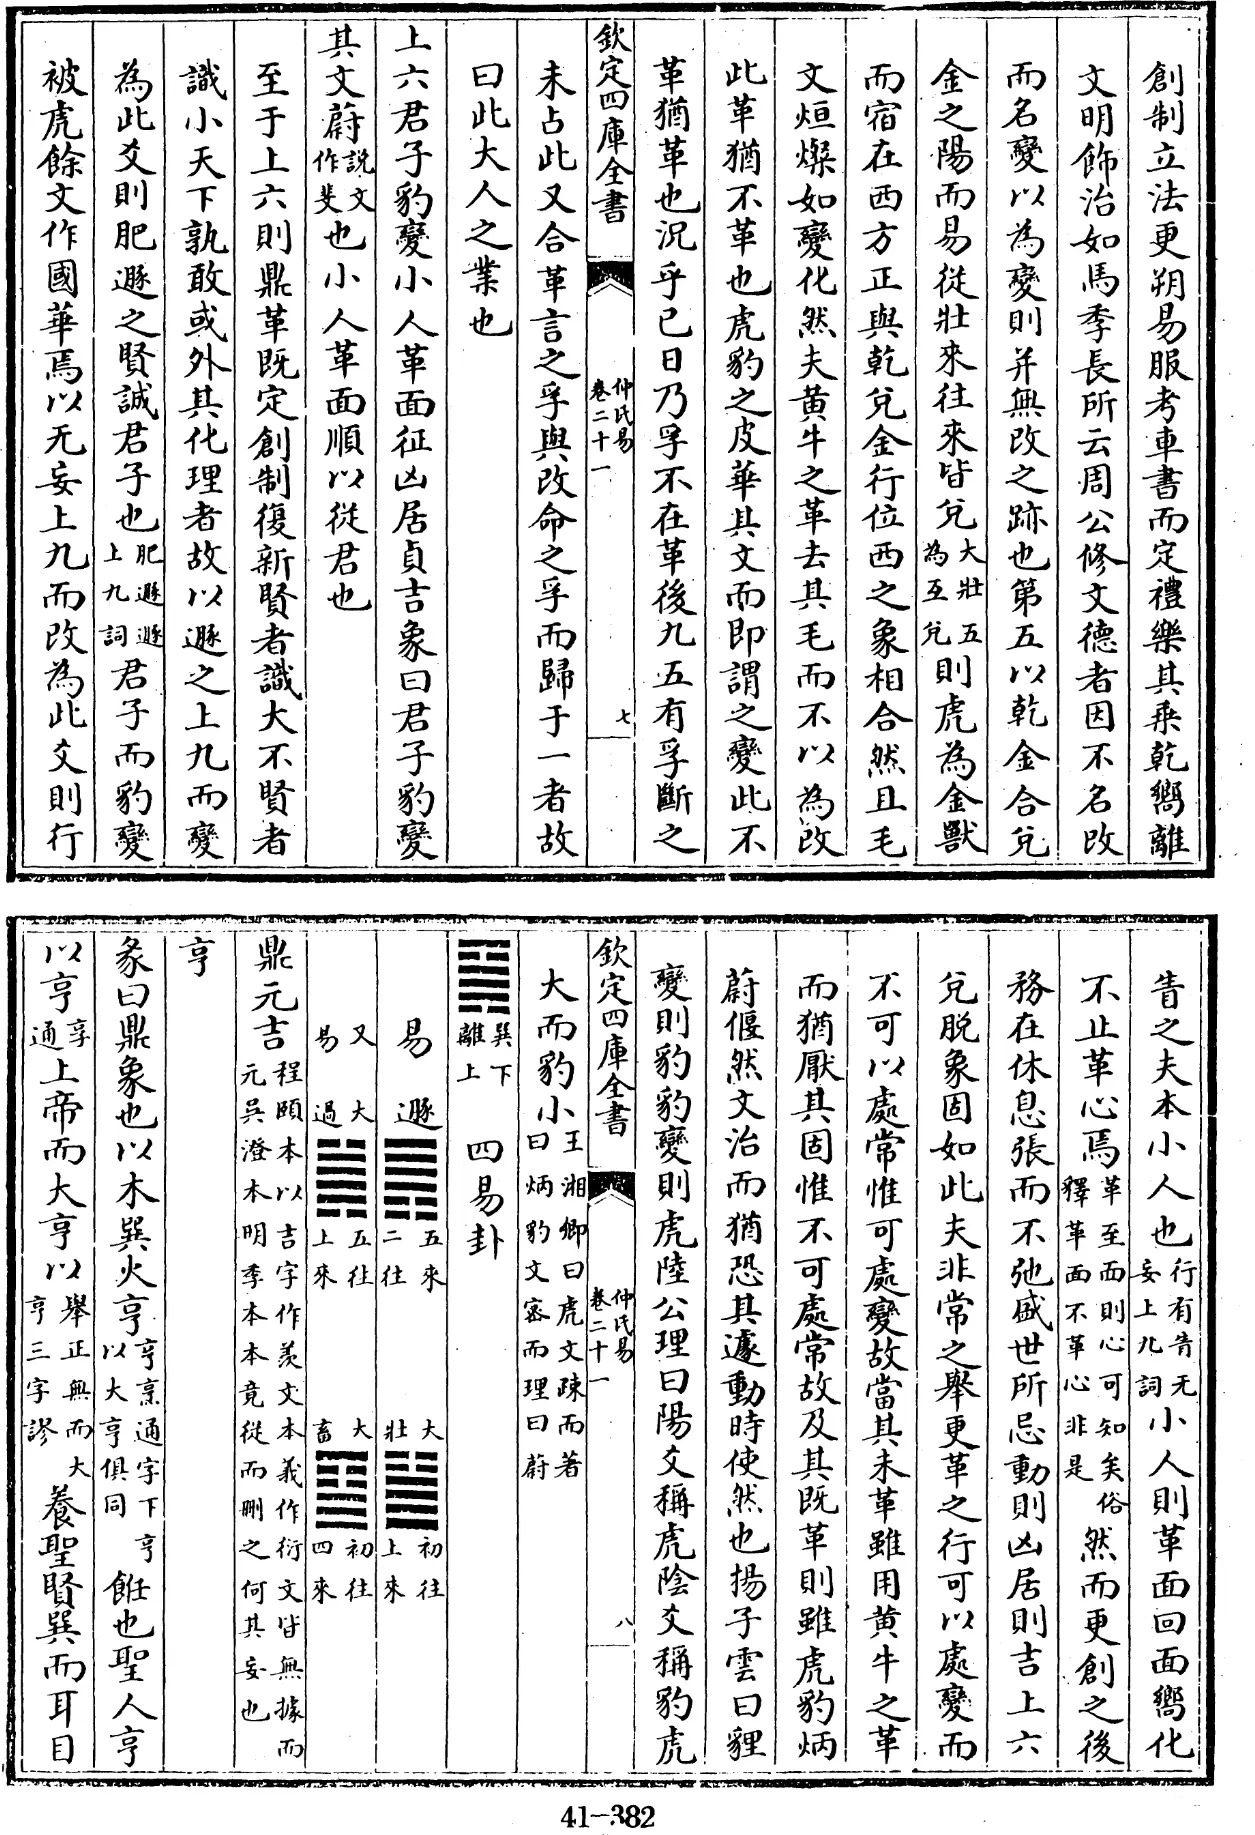 創制立法更朔易服考車書而定禮樂其乘乾嚮離
文明飾治如馬季長所云周公修文德者因不名改
而名變以為變則并無改之跡也第五以乾金合兌
金之陽而易從壯來往來皆兌大壯五為互兌則虎為金獸
而宿在西方正與乾兌金行位西之象相合然且毛
文烜燦如變化然夫黃牛之革去其毛而不以為改
此革猶不革也虎豹之皮華其文而即謂之變此不
革猶革也況乎已日乃孚不在革後九五有孚斷之
欽定四庫全書
仲氏易
卷二十一
七
未占此又合革言之孚與改命之孚而歸于一者故
曰此大人之業也
上六君子豹變小人革面征凶居貞吉象曰君子豹變
其文蔚說文作斐也小人革面順以從君也
至于上六則鼎革既定創制復新賢者識大不賢者
識小天下孰敢或外其化理者故以遯之上九而變
為此爻則肥遯之賢誠君子也肥遯遯上九詞君子而豹變
被虎餘文作國華焉以无妄上九而改為此爻則行
眚之夫本小人也行有眚无妄上九詞小人則革面回面嚮化
不止革心焉革至面則心可知矣俗釋革面不革心非是然而更創之後
務在休息張而不弛盛世所忌動則凶居則吉上六
兌脫象固如此夫非常之舉更革之行可以處變而
不可以處常惟可處變故當其未革雖用黃牛之革
而猶厭其固惟不可處常故及其既革則雖虎豹炳
蔚偃然文治而猶恐其遽動時使然也揚子雲曰貍
變則豹豹變則虎陸公理曰陽爻稱虎陰爻稱豹虎
欽定四庫全書
仲氏易
卷二十一
八
大而豹小王湘卿曰虎文疎而著曰炳豹文宻而理曰蔚
巽下離上 四易卦
易 遯五來二往 大壯初往上來
又易 大過五往上來 大畜初往四來
鼎元吉程頤本以吉字作羨文本義作衍文皆無據而元吳澄本明季本本竟從而刪之何其妄也
亨
彖曰鼎象也以木巽火亨亨烹通字下亨以大亨俱同飪也聖人亨
以亨享通上帝而大亨以舉正無而大亨三字謬養聖賢巽而耳目
41-382